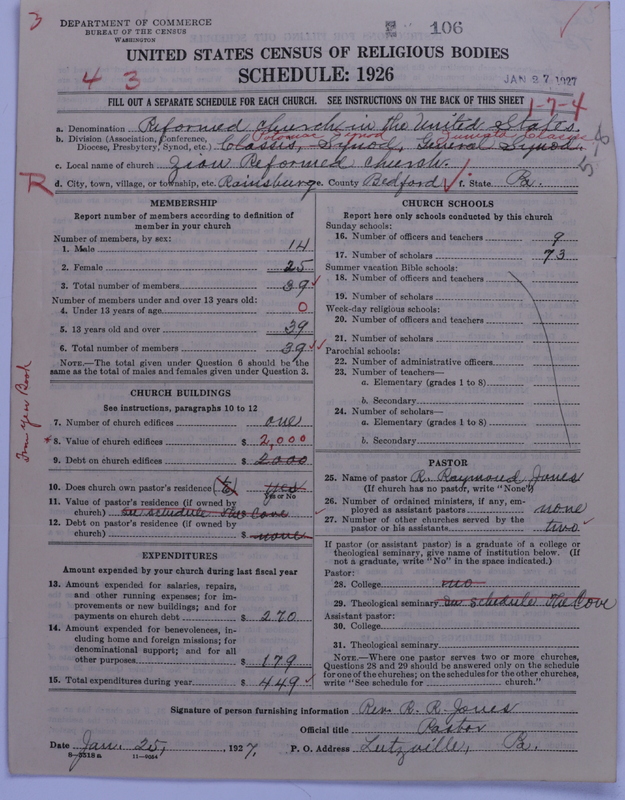 3
DEPARTMENT OF COMMERCE
BUREAU OF THE CENSUS
WASHINGTON
106
UNITED STATES CENSUS OF RELIGIOUS BODIES
SCHEDULE: 1926
4 3
JAN 27 1927
FILL OUT A SEPARATE SCHEDULE FOR EACH CHURCH. SEE INSTRUCTIONS ON THE BACK OF THIS SHEET
1-7-4
a. Denomination Reformed Church in the United States.
Potomac Synod Juniata Classis
b. Division (Association, Conference, Diocese, Presbytery, Synod, etc.) Classis, Synod, General Synod.
c. Local name of church Zion Reformed Church.
R
d. City, town, village, or township, etc. Rainsburg e. County Bedford f. State Pa.
MEMBERSHIP
Report number of members according to definition of
member in your church
Number of members, by sex:
1. Male 14
2. Female 25
3. Total number of members 39
Number of members under and over 13 years old:
4. Under 13 years of age 0
5. 13 years old and over 39
6. Total number of members 39
NOTE.—The total given under Question 6 should be the
same as the total of males and females given under Question 3.
From Year Book
CHURCH BUILDINGS
See instructions, paragraphs 10 to 12
7. Number of church edifices one
*8. Value of church edifices $ 2,000
9. Debt on church edifices $ 2000
10. Does church own pastor's residence yes
Yes or No
11. Value of pastor's residence (if owned by
church) see schedule The Cove
12. Debt on pastor's residence (if owned by
church) $ none
EXPENDITURES
Amount expended by your church during last fiscal year
13. Amount expended for salaries, repairs,
and other running expenses; for im-
provements or new buildings; and for
payments on church debt $ 270
14. Amount expended for benevolences, in-
cluding home and foreign missions; for
denominational support; and for all
other purposes $ 179
15. Total expenditures during year $ 449
CHURCH SCHOOLS
Report here only schools conducted by this church
Sunday schools:
16. Number of officers and teachers 9
17. Number of scholars 73
Summer vacation Bible schools:
18. Number of officers and teachers
19. Number of scholars
Week-day religious schools:
20. Number of officers and teachers
21. Number of scholars
Parochial schools:
22. Number of administrative officers
23. Number of teachers—
a. Elementary (grades 1 to 8)
b. Secondary
24. Number of scholars—
a. Elementary (grades 1 to 8)
b. Secondary
PASTOR
25. Name of pastor R. Raymond Jones
(If church has no pastor, write "None")
26. Number of ordained ministers, if any, em-
ployed as assistant pastors none
27. Number of other churches served by the
pastor or his assistants two
If pastor (or assistant pastor) is a graduate of a college or
theological seminary, give name of institution below. (If
not a graduate, write "No" in the space indicated.)
Pastor:
28. College no
29. Theological seminary see schedule The Cove
Assistant pastor:
30. College
31. Theological seminary
NOTE.—Where one pastor serves two or more churches,
Questions 28 and 29 should be answered only on the schedule
for one of the churches; on the schedules for the other churches,
write "See schedule for church."
Signature of person furnishing information Rev. R. R. Jones
Official title Pastor
Date Jan. 25, 1927. P. O. Address Lutzville, Pa.
8—5318a 11—9054